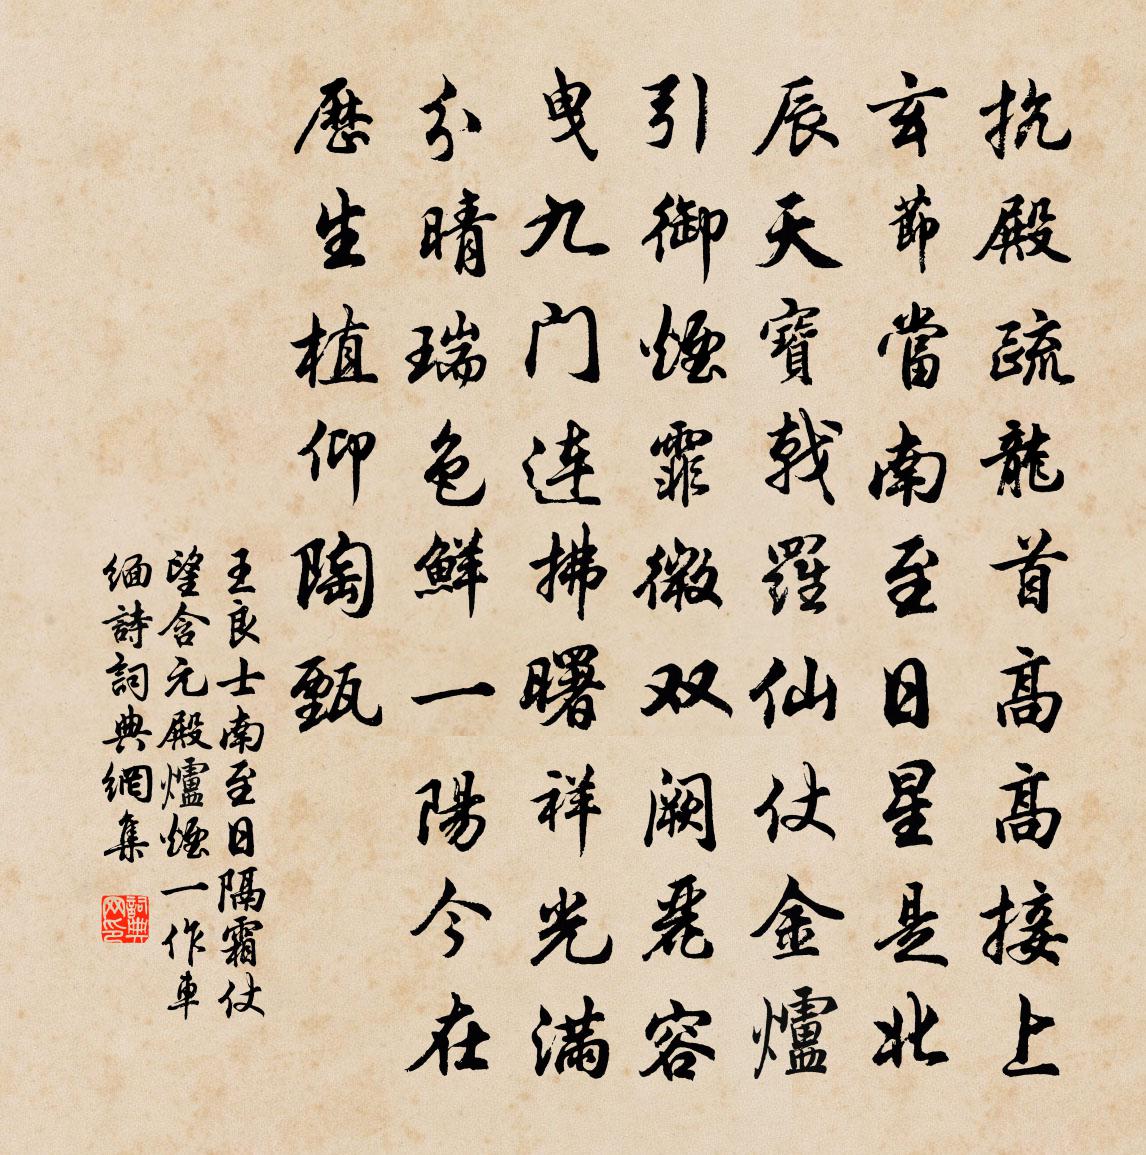 抗殿疏龍首高高接上
玄節當南至日星是北
辰天寶戟羅仙仗金爐
引御煙霏微双阙麗容
曳九门连拂曙祥光滿
分晴瑞色鮮一陽今在
歷生植仰陶甄
王良士南至日隔霜仗
望含元殿爐煙一作車
缅詩詞典網集
詞典网印